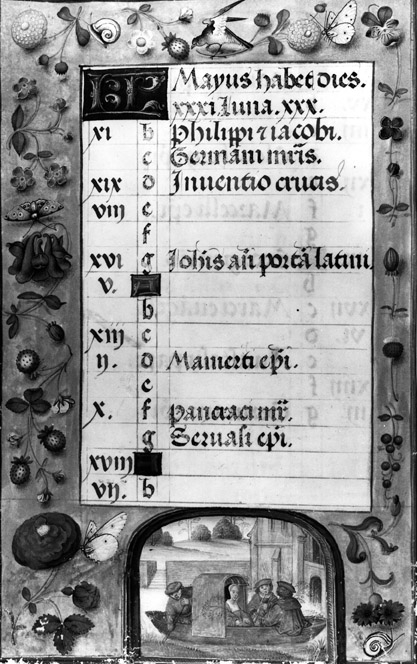 KL Mayus habet dies.
xxxi Luna. xxx.
xi b Philippi ⁊ iacobi.
c Germani mris.
xix d Inventio crucis.
viii e
f
xvi g Johis an portā latini.
v. A
b.
xiii c
ii. d Mamerti epi.
e
x. f pancraci mr.
g Seruasi epi.
xviii A
vii. b